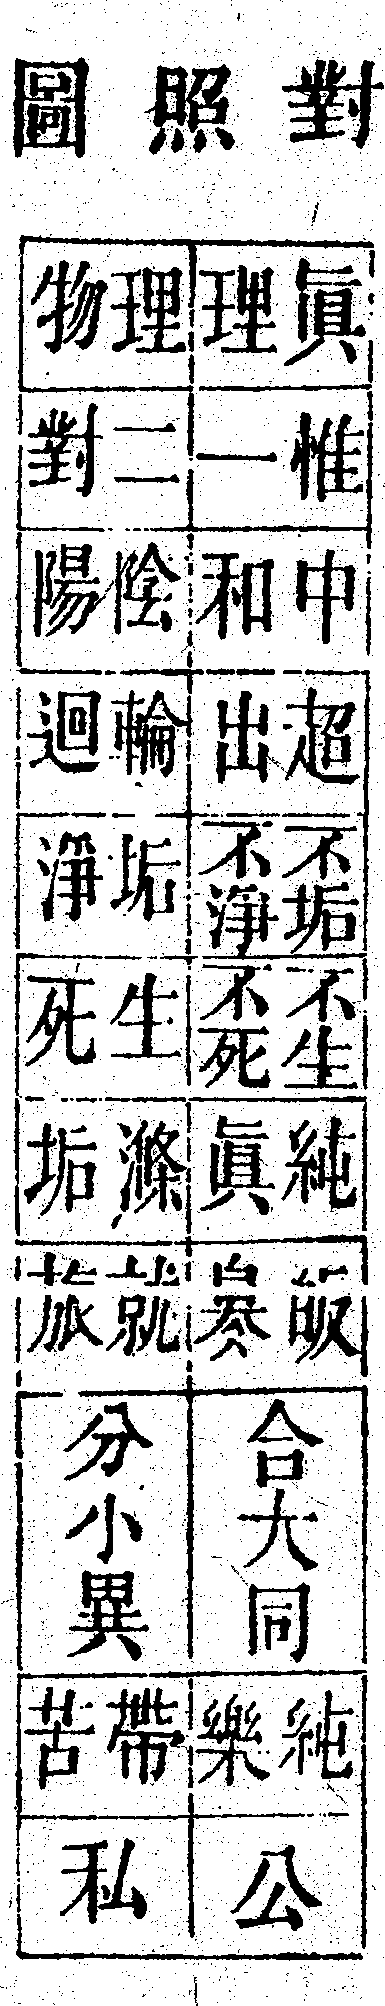 對照圖
眞理
理物
惟一
二對
中和
陰陽
超出
輪迴
不垢不淨
垢淨
不生不死
生死
純眞
滌垢
皈
就旅
合大同
分小異
純樂
帶苦
公
私